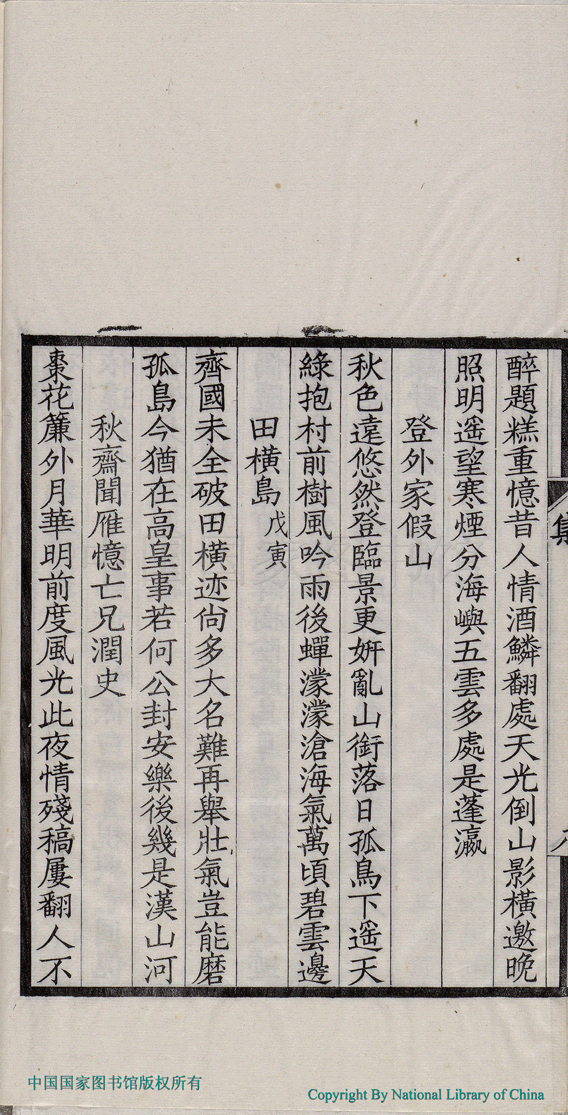 醉題糕重憶昔人情酒鱗翻處天光倒山影橫邀晚
照明遥望寒煙分海嶼五雲多處是蓬瀛
登外家假山
秋色遠悠然登臨景更妍亂山銜落日孤鳥下遥天
綠抱村前樹風吟雨後蟬濛濛滄海氣萬頃碧雲邊
田橫島 戊寅
齊國未全破田橫迹尙多大名難再舉壯氣豈能磨
孤島今猶在高皇事若何公封安樂後幾是漢山河
秋齋聞雁憶亡兄潤史
棗花簾外月華明前度風光此夜情殘稿屢翻人不
中国国家图书馆版权所有
Copyright By National Library of China